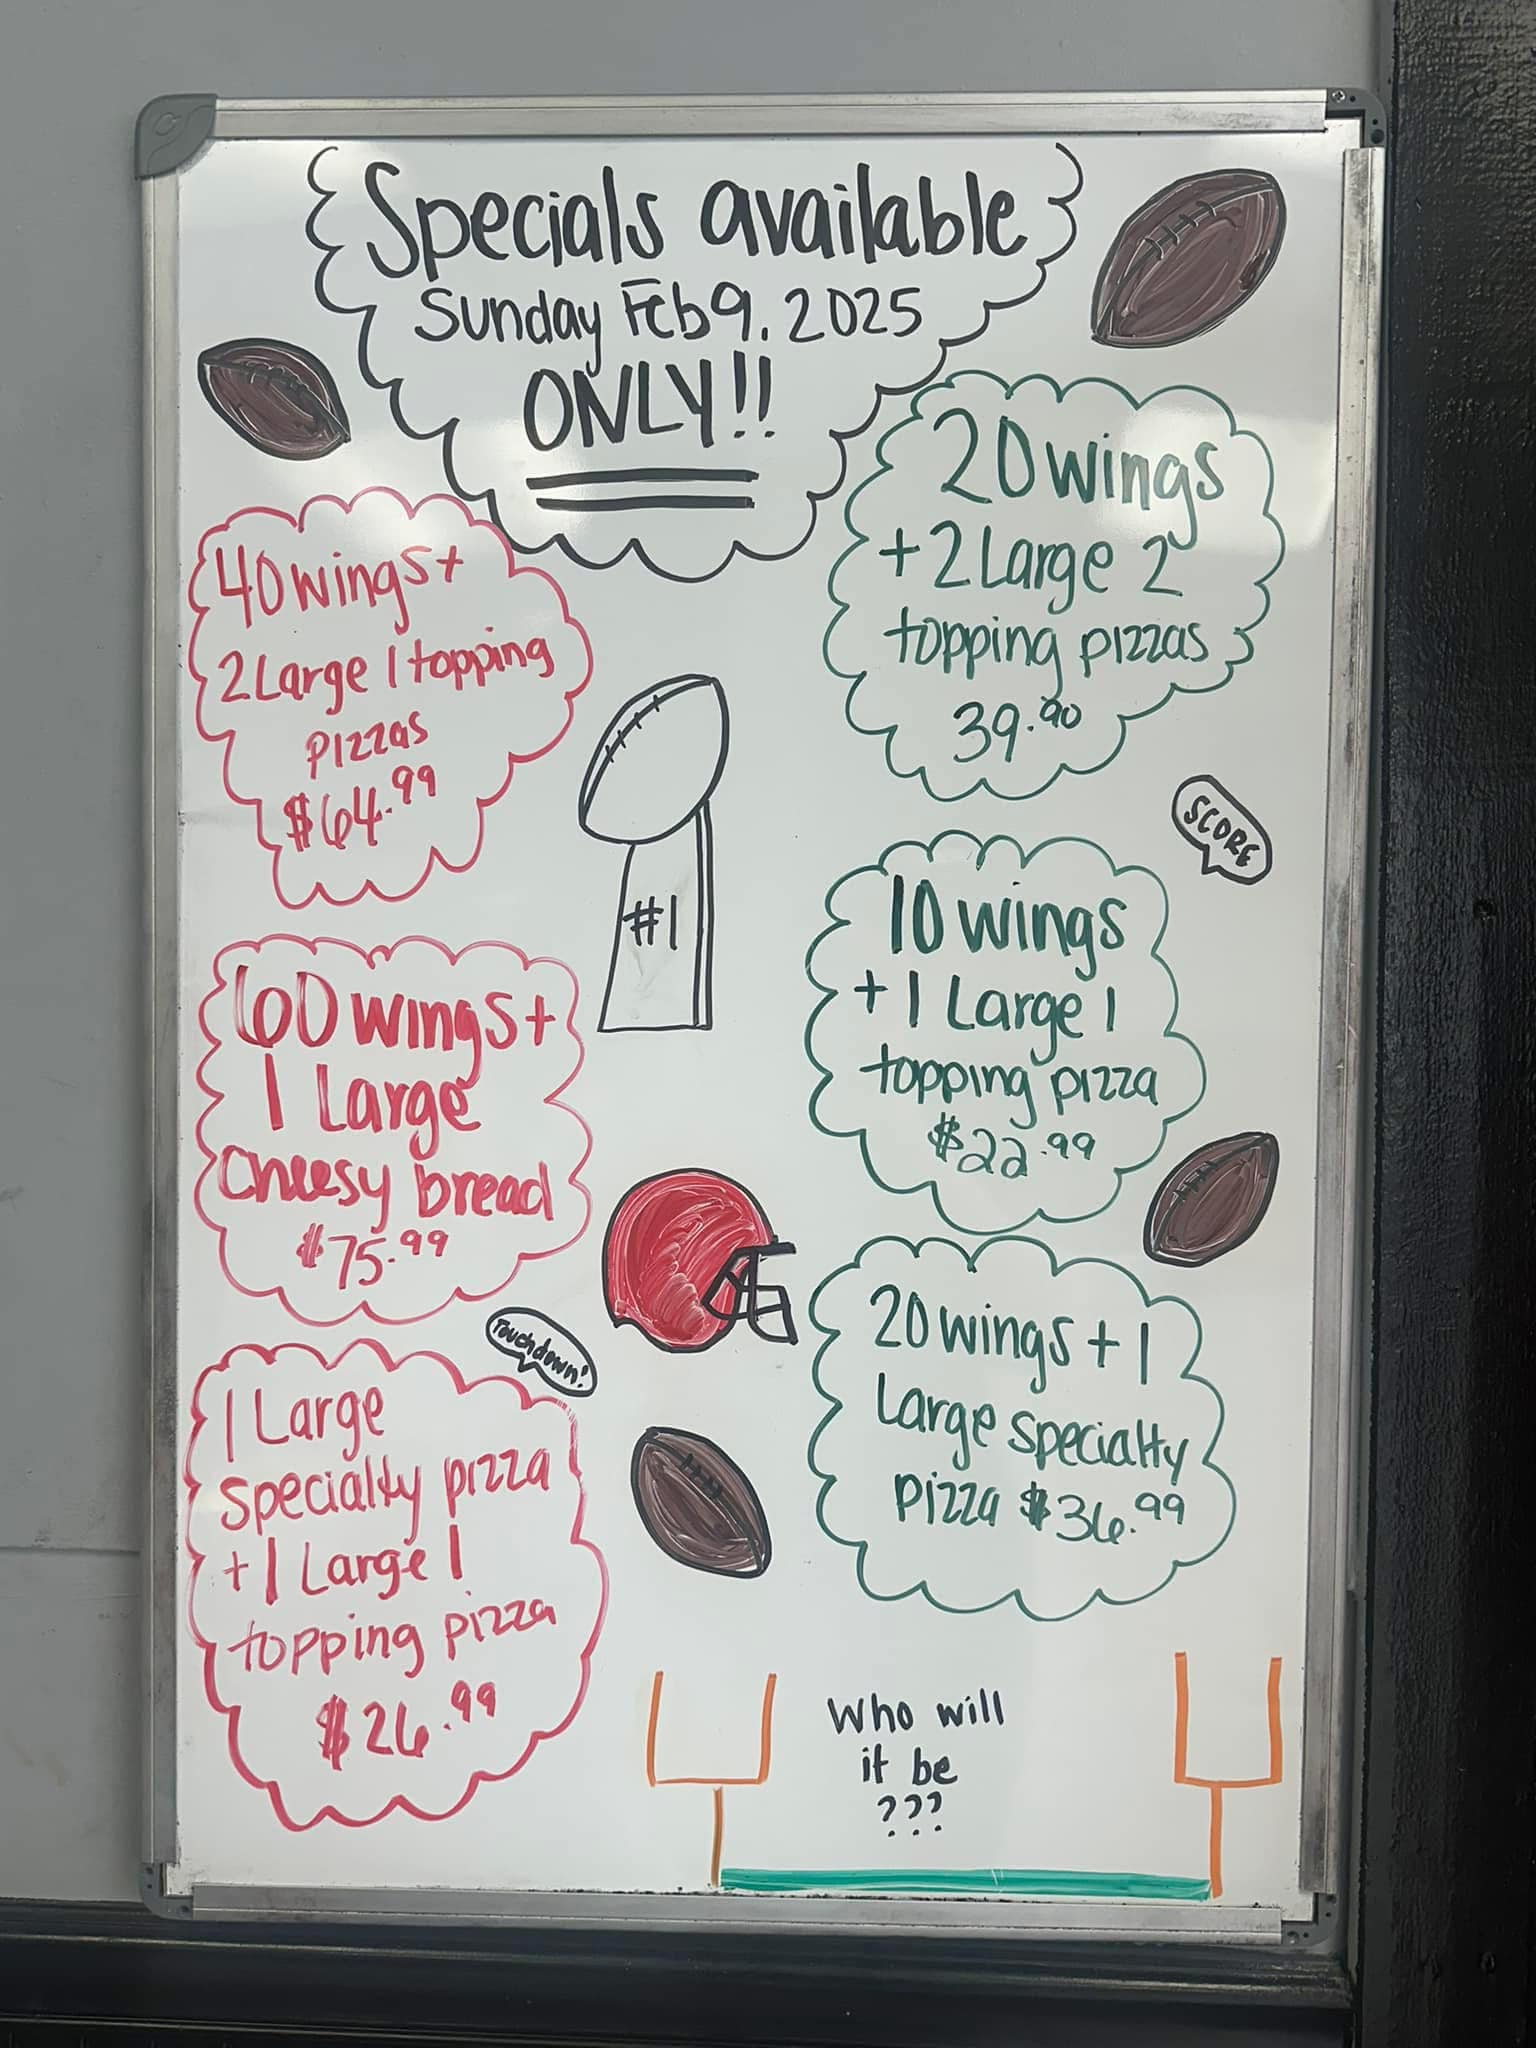 Specials available
Sunday Feb 9. 2025
ONLY!!
40 wings +
2 Large 1 topping
pizzas
$64.99
60 wings +
1 Large
Cheesy bread
$75.99
Touchdown!
1 Large
specialty pizza
+ 1 Large 1
topping pizza
$26.99
#1
20 wings
+ 2 Large 2
topping pizzas
39.90
SCORE
10 wings
+ 1 Large 1
topping pizza
$22.99
20 wings + 1
Large specialty
pizza $36.99
Who will
it be
???